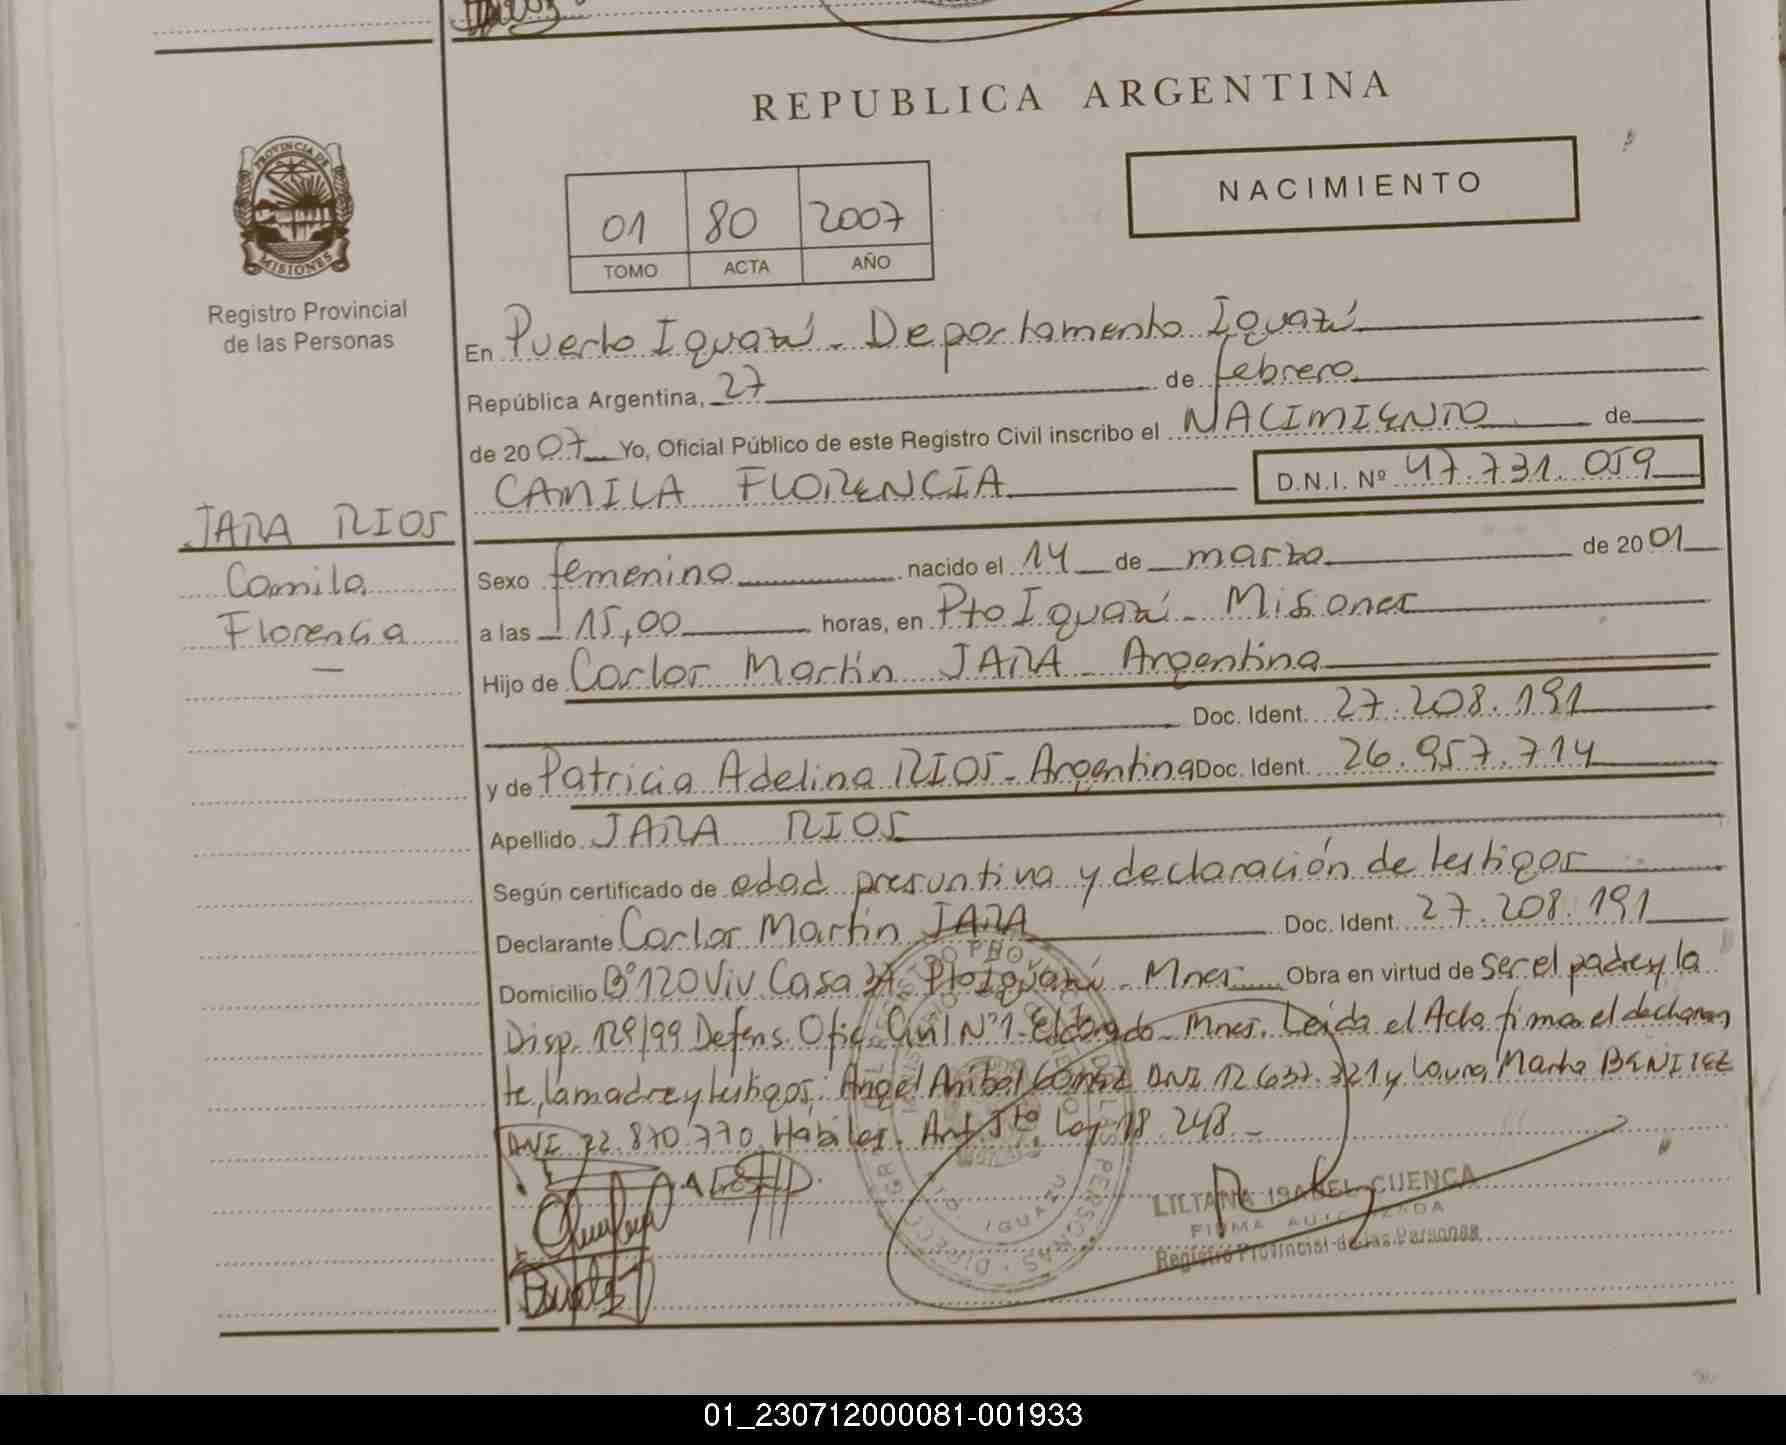 REPUBLICA ARGENTINA
PROVINCIA DE MISIONES
Registro Provincial
de las Personas
NACIMIENTO
01 80 2007
TOMO ACTA AÑO
En Puerto Iguazú - Departamento Iguazú
República Argentina, 27 de febrero
de 2007 Yo, Oficial Público de este Registro Civil inscribo el NACIMIENTO de
CAMILA FLORENCIA D.N.I. Nº 47.731.059
JARA RIOS
Camila
Florencia
—
Sexo femenino nacido el 14 de marzo de 2001
a las 15,00 horas, en Pto Iguazú - Misiones
Hijo de Carlos Martín JARA - Argentina
Doc. Ident. 27.208.191
y de Patricia Adelina RIOS - Argentina Doc. Ident. 26.957.714
Apellido JARA RIOS
Según certificado de edad presuntiva y declaración de testigos
Declarante Carlos Martín JARA Doc. Ident. 27.208.191
Domicilio Bº 120 Viv Casa Pto Iguazú - Mnes Obra en virtud de ser el padre y la
Disp. 129/99 Defens. Ofic. Civil Nº 1 - Eldorado - Mnes. Leída el Acta firman el declaran
te, la madre y testigos: Angel Anibal Gomez DNI 12.637.321 y Laura Marta BENITEZ
DNI 22.870.770 Habiles. Art. 5to Ley 18.248 -
LILIANA ISABEL CUENCA
FIRMA AUTORIZADA
Registro Provincial de las Personas
01_230712000081-001933